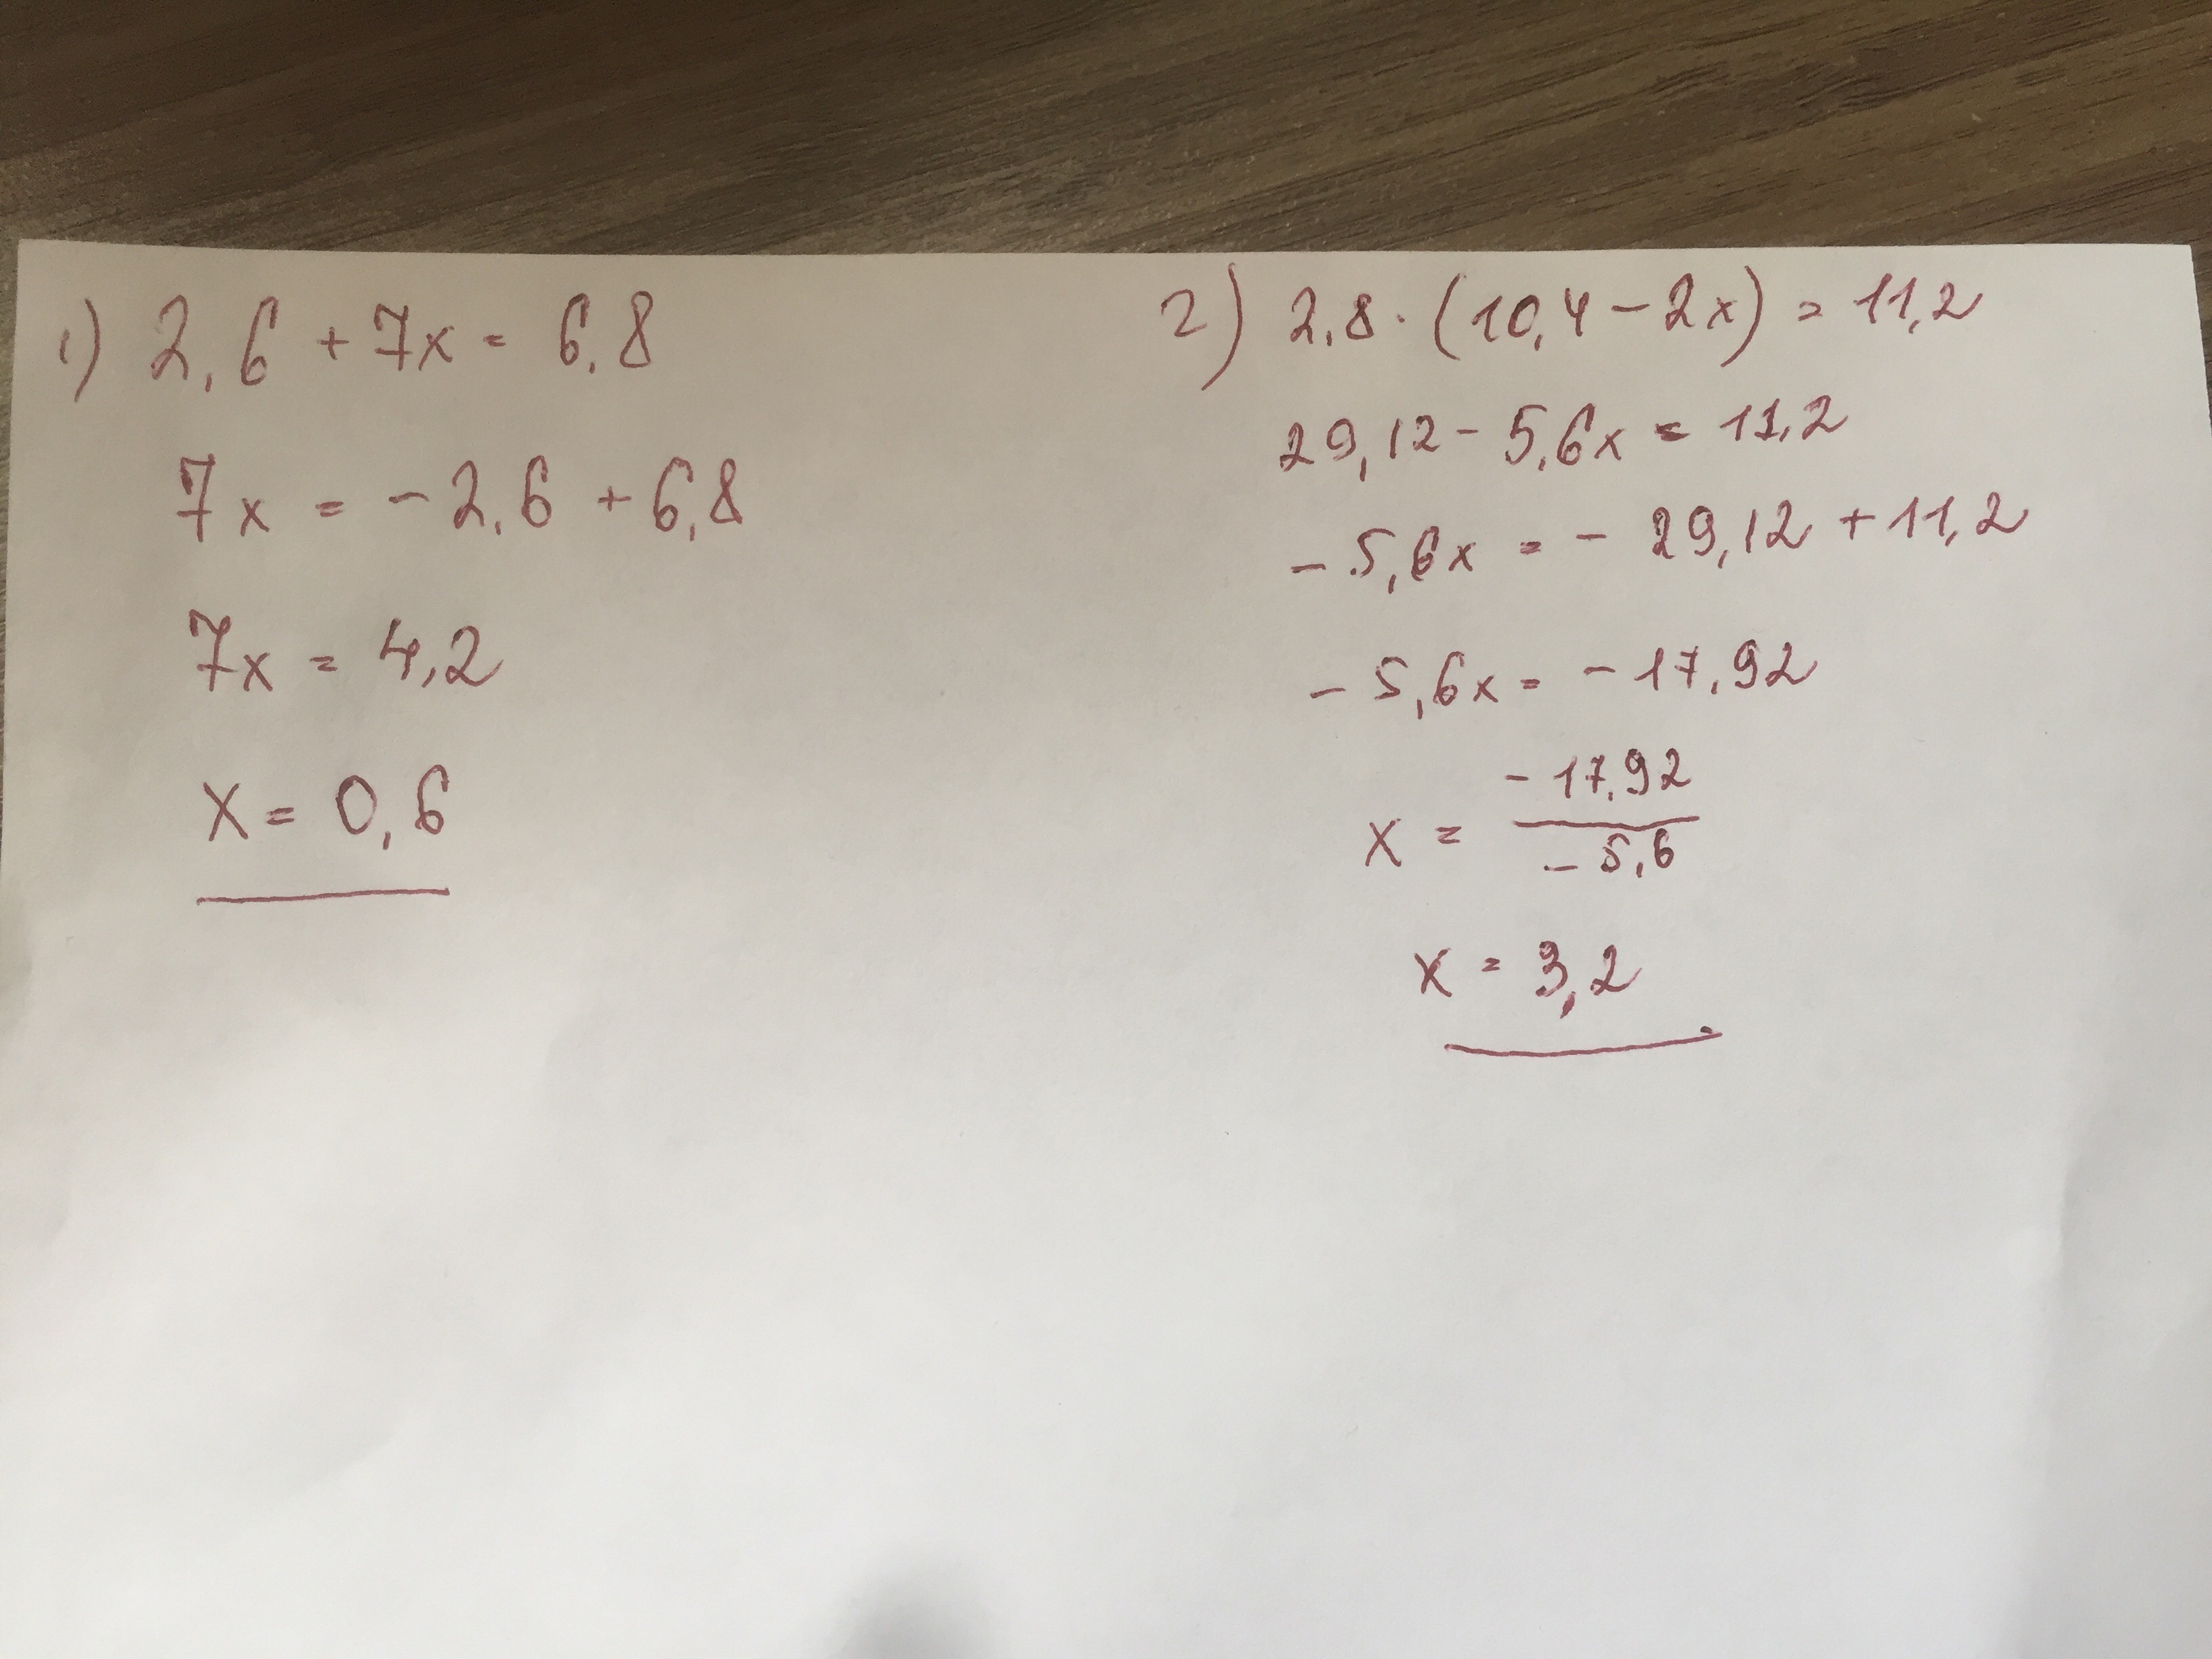 1) 2,6 + 7x = 6,8
7x = - 2,6 + 6,8
7x = 4,2
x = 0,6
2) 2,8 · (10,4 - 2x) = 11,2
29,12 - 5,6x = 11,2
- 5,6x = - 29,12 + 11,2
- 5,6x = - 17,92
x = - 17,92 / - 5,6
x = 3,2